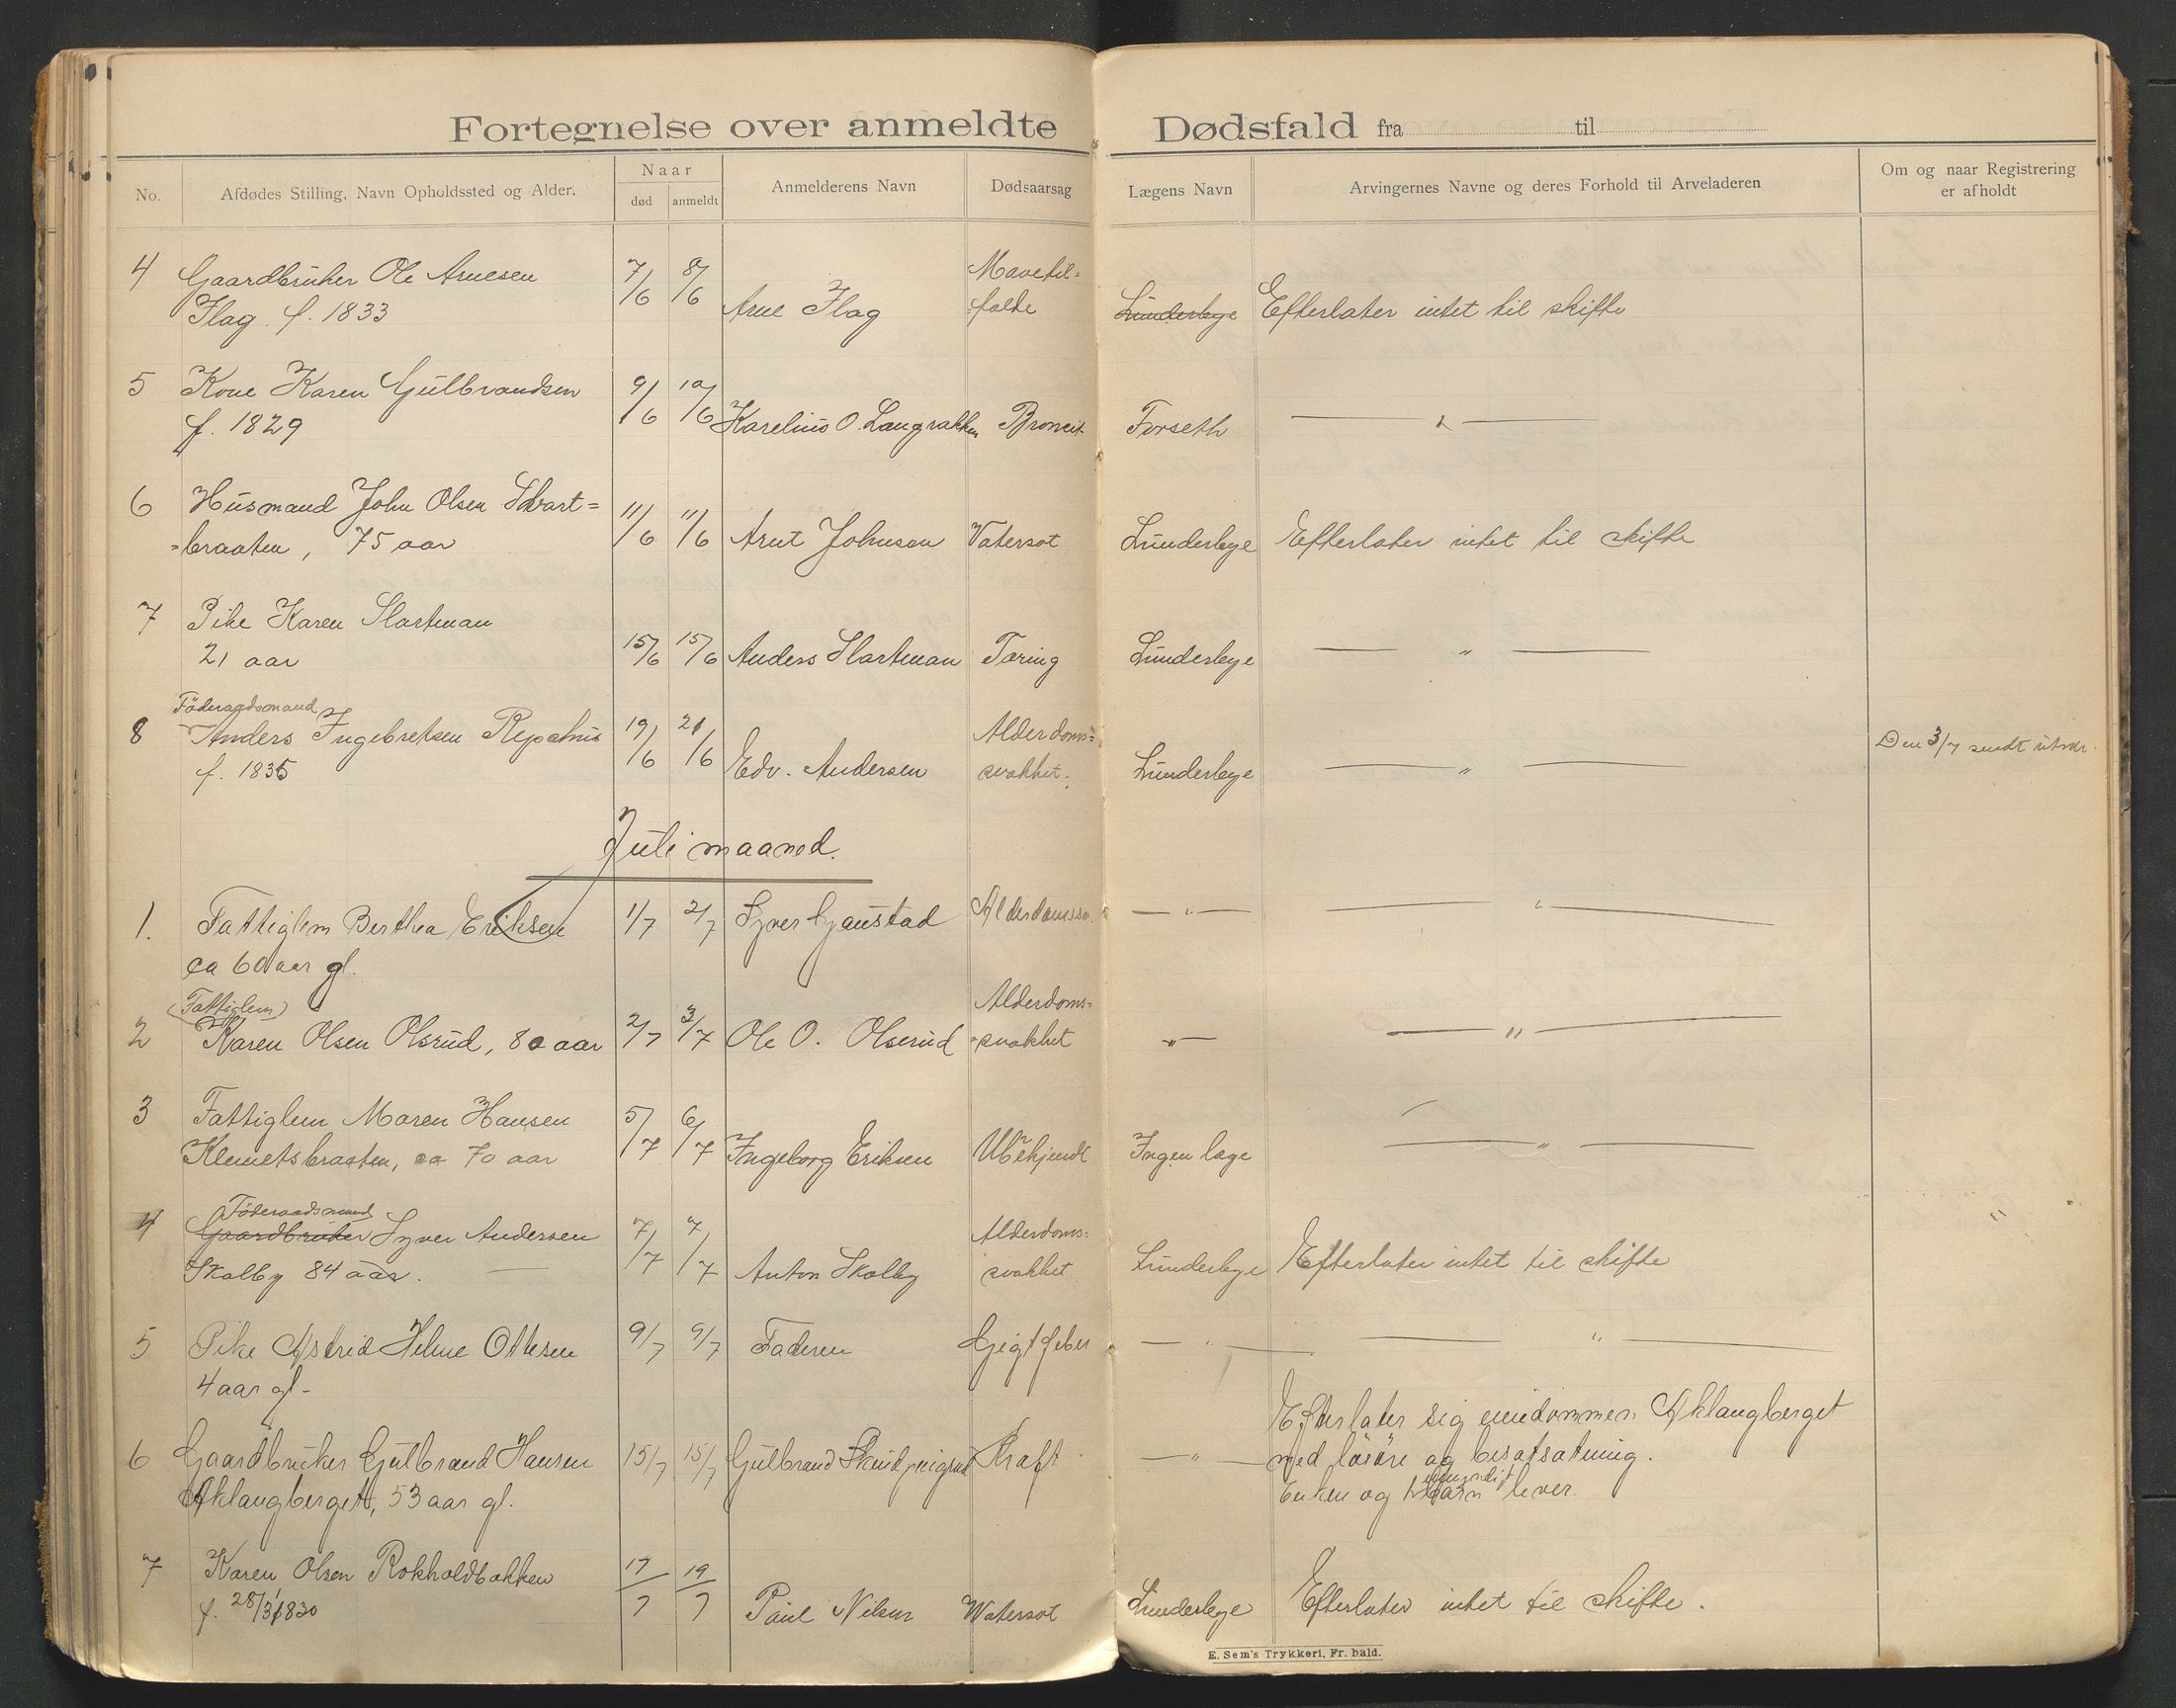 Fortegnelse over anmeldte Dødsfald fra til
No. Afdødes Stilling, Navn Opholdssted og Alder. Naar død anmeldt Anmelderens Navn Dødsaarsag Lægens Navn Arvingernes Navne og deres Forhold til Arveladeren Om og naar Registrering er afholdt
4 Gaardbruker Ole Arnesen 7/6 8/6 Mavetil=
Flag f. 1833 Arne Flag =fælde Lunderbye Efterlater intet til skifte
5 Kone Karen Gulbrandsen 9/6 10/6
f. 1829 Karelius O. Langrakken Broncit Forseth — " —
6 Husmand John Olsen Svart= 11/6 11/6
=braaten, 75 aar Arnt Johnsen Vatersot Lunderbye Efterlater intet til skifte
7 Pike Karen Slastuean
21 aar 15/6 15/6 Anders Slastuean Tæring Lunderbye — " —
Föderaadsmand
8 Anders Ingebretsen Repshus 19/6 21/6 Alderdoms= Den 3/7 sendt utskr.
f. 1835 Edv. Andersen svakhet. Lunderbye — " —
Juli maaned.
1. Fattiglem Berthea Eriksen 1/7 2/7 Syver Gjaustad Alderdomssv. — " — — " —
ca 60 aar gl.
(Fattiglem) Alderdoms=
2 Karen Olsen Olsrud, 80 aar 2/7 3/7 Ole O. Olserud =svakhet — " — — " —
3 Fattiglem Maren Hansen 5/7 6/7
Klemetsbraaten, ca 70 aar Ingeborg Eriksen Ubekjendt Ingen læge — " —
Föderaadsmand
4 Gaardbruker Syver Andersen 7/7 7/7 Alderdoms=
Skolby 84 aar. Anton Skolby svakhet Lunderbye Efterlater intet til skifte
5 Pike Astrid Helene Ottesen 9/7 9/7 Faderen Gjigtfeber — " — — " —
4 aar gl-
Efterlater sig eiendommen Aklangberget
6 Gaardbruker Gulbrand Hansen 15/7 15/7 Gulbrand Kræft — " — med lösöre og besætsætning.
umyndigt
Aklangberget, 53 aar gl. Enken og 1 barn lever.
7 Karen Olsen Rokholdbakken 17/7 19/7
f. 28/3 1830 Paul Nilsen Watersot Lunderbye Efterlater intet til skifte.
E. Sem's Trykkeri, Fr. hald.